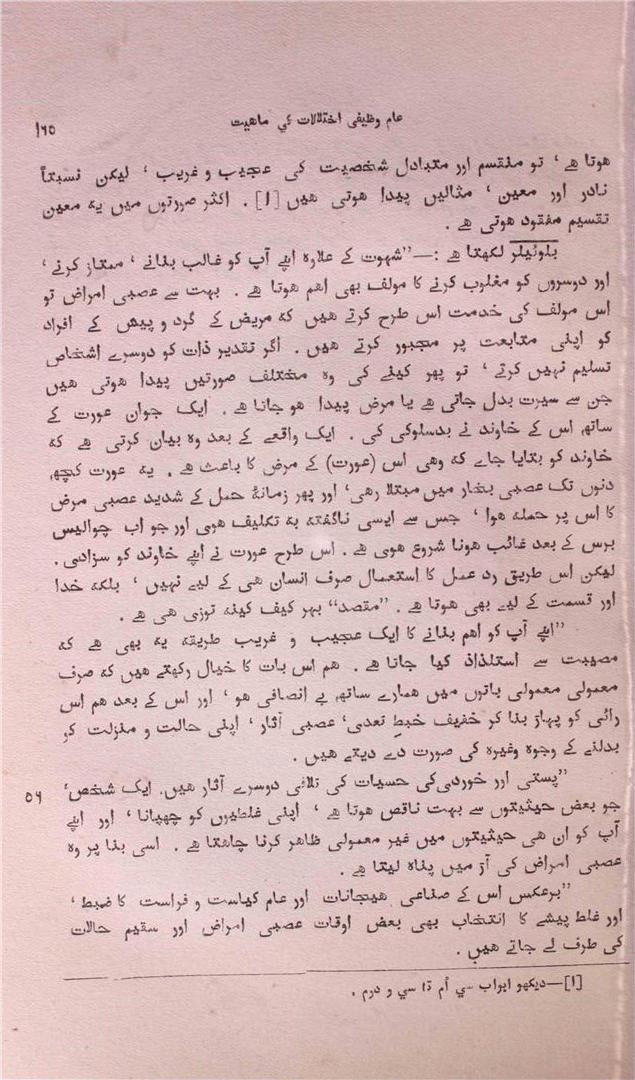 عام وظیفی اختلالات کی ماهیت
۱۶۵
هوتا هے ٬ تو منقسم اور متبادل شخصیت کی عجیب و غریب ٬ لیکن نسبتاً
نادر اور معین ٬ مثالیں پیدا هوتی هیں [۱] . اکثر صورتوں میں یه معین
تقسیم مفقود هوتی هے .
بلوئیلر لکھتا هے :—”شہوت کے علاوہ اپنے آپ کو غالب بنانے ٬ ممتاز کرنے ٬
اور دوسروں کو مغلوب کرنے کا مولف بھی اهم هوتا هے . بہت سے عصبی امراض تو
اس مولف کی خدمت اس طرح کرتے هیں که مریض کے گرد و پیش کے افراد
کو اپنی متابعت پر مجبور کرتے هیں . اگر تقدیر ذات کو دوسرے اشخاص
تسلیم نہیں کرتے ٬ تو پھر کینے کی وہ مختلف صورتیں پیدا هوتی هیں
جن سے سیرت بدل جاتی هے یا مرض پیدا هو جاتا هے . ایک جوان عورت کے
ساتھ اس کے خاوند نے بدسلوکی کی . ایک واقعے کے بعد وہ بیان کرتی هے که
خاوند کو بتایا جاے که وهی اس (عورت) کے مرض کا باعث هے . یه عورت کچھ
دنوں تک عصبی بخار میں مبتلا رهی٬ اور پھر زمانۂ حمل کے شدید عصبی مرض
کا اس پر حمله هوا ٬ جس سے ایسی ناگفته به تکلیف هوی اور جو اب چوالیس
برس کے بعد غائب هونا شروع هوی هے . اس طرح عورت نے اپنے خاوند کو سزادی .
لیکن اس طریق رد عمل کا استعمال صرف انسان هی کے لیے نہیں ٬ بلکه خدا
اور قسمت کے لیے بھی هوتا هے . ”مقصد“ بہر کیف کینه توزی هی هے .
”اپنے آپ کو اهم بنانے کا ایک عجیب و غریب طریقه یه بھی هے که
مصیبت سے استلذاذ کیا جاتا هے . هم اس بات کا خیال رکھتے هیں که صرف
معمولی معمولی باتوں میں همارے ساتھ بے انصافی هو ٬ اور اس کے بعد هم اس
رائی کو پہاڑ بنا کر خفیف خبطِ تعدی٬ عصبی آثار ٬ اپنی حالت و منزلت کو
بدلنے کے وجوہ وغیرہ کی صورت دے دیتے هیں .
”پستی اور خوردی کی حسیات کی تلافی دوسرے آثار هیں . ایک شخص٬
۵۶
جو بعض حیثیتوں سے بہت ناقص هوتا هے ٬ اپنی غلطیوں کو چھپانا ٬ اور اپنے
آپ کو ان هی حیثیتوں میں غیر معمولی ظاهر کرنا چاهتا هے . اسی بنا پر وہ
عصبی امراض کی آڑ میں پناہ لیتا هے .
”برعکس اس کے صناعی هیجانات اور عام کیاست و فراست کا ضبط ٬
اور غلط پیشے کا انتخاب بھی بعض اوقات عصبی امراض اور سقیم حالات
کی طرف لے جاتے هیں .
[۱]—دیکھو ابواب سی اُم تا سی و درم .